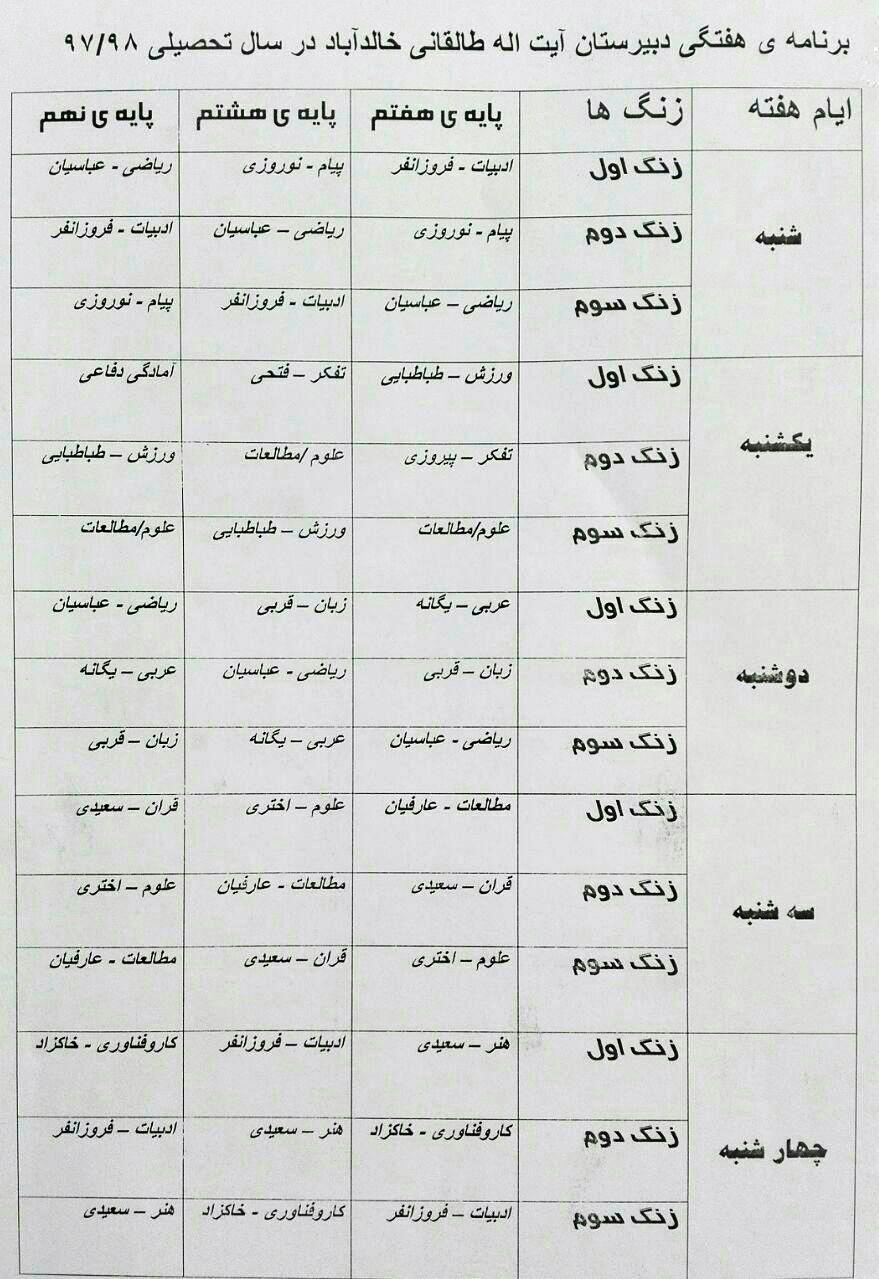 برنامه ی هفتگی دبیرستان آیت اله طالقانی خالدآباد در سال تحصیلی ۹۷/۹۸
ایام هفته زنگ ها پایه ی هفتم پایه ی هشتم پایه ی نهم
شنبه
زنگ اول ادبیات - فروزانفر پیام - نوروزی ریاضی - عباسیان
زنگ دوم پیام - نوروزی ریاضی – عباسیان ادبیات - فروزانفر
زنگ سوم ریاضی – عباسیان ادبیات - فروزانفر پیام - نوروزی
یکشنبه
زنگ اول ورزش – طباطبایی تفکر – فتحی آمادگی دفاعی
زنگ دوم تفکر – پیروزی علوم /مطالعات ورزش – طباطبایی
زنگ سوم علوم/مطالعات ورزش – طباطبایی علوم/مطالعات
دوشنبه
زنگ اول عربی – یگانه زبان – قربی ریاضی - عباسیان
زنگ دوم زبان – قربی ریاضی - عباسیان عربی – یگانه
زنگ سوم ریاضی - عباسیان عربی – یگانه زبان – قربی
سه شنبه
زنگ اول مطالعات - عارفیان علوم – اختری قران – سعیدی
زنگ دوم قران – سعیدی مطالعات - عارفیان علوم – اختری
زنگ سوم علوم – اختری قران – سعیدی مطالعات - عارفیان
چهار شنبه
زنگ اول هنر – سعیدی ادبیات – فروزانفر کاروفناوری - خاکزاد
زنگ دوم کاروفناوری - خاکزاد هنر – سعیدی ادبیات – فروزانفر
زنگ سوم ادبیات – فروزانفر کاروفناوری - خاکزاد هنر – سعیدی